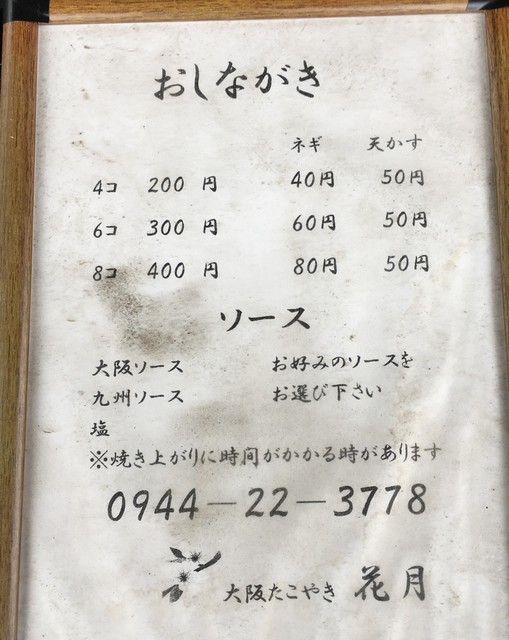 おしながき
ネギ 天かす
4コ 200 円 40円 50円
6コ 300 円 60円 50円
8コ 400 円 80円 50円
ソース
大阪ソース お好みのソースを
九州ソース お選び下さい
塩
※焼き上がりに時間がかかる時があります
0944－22－3778
大阪たこやき 花月